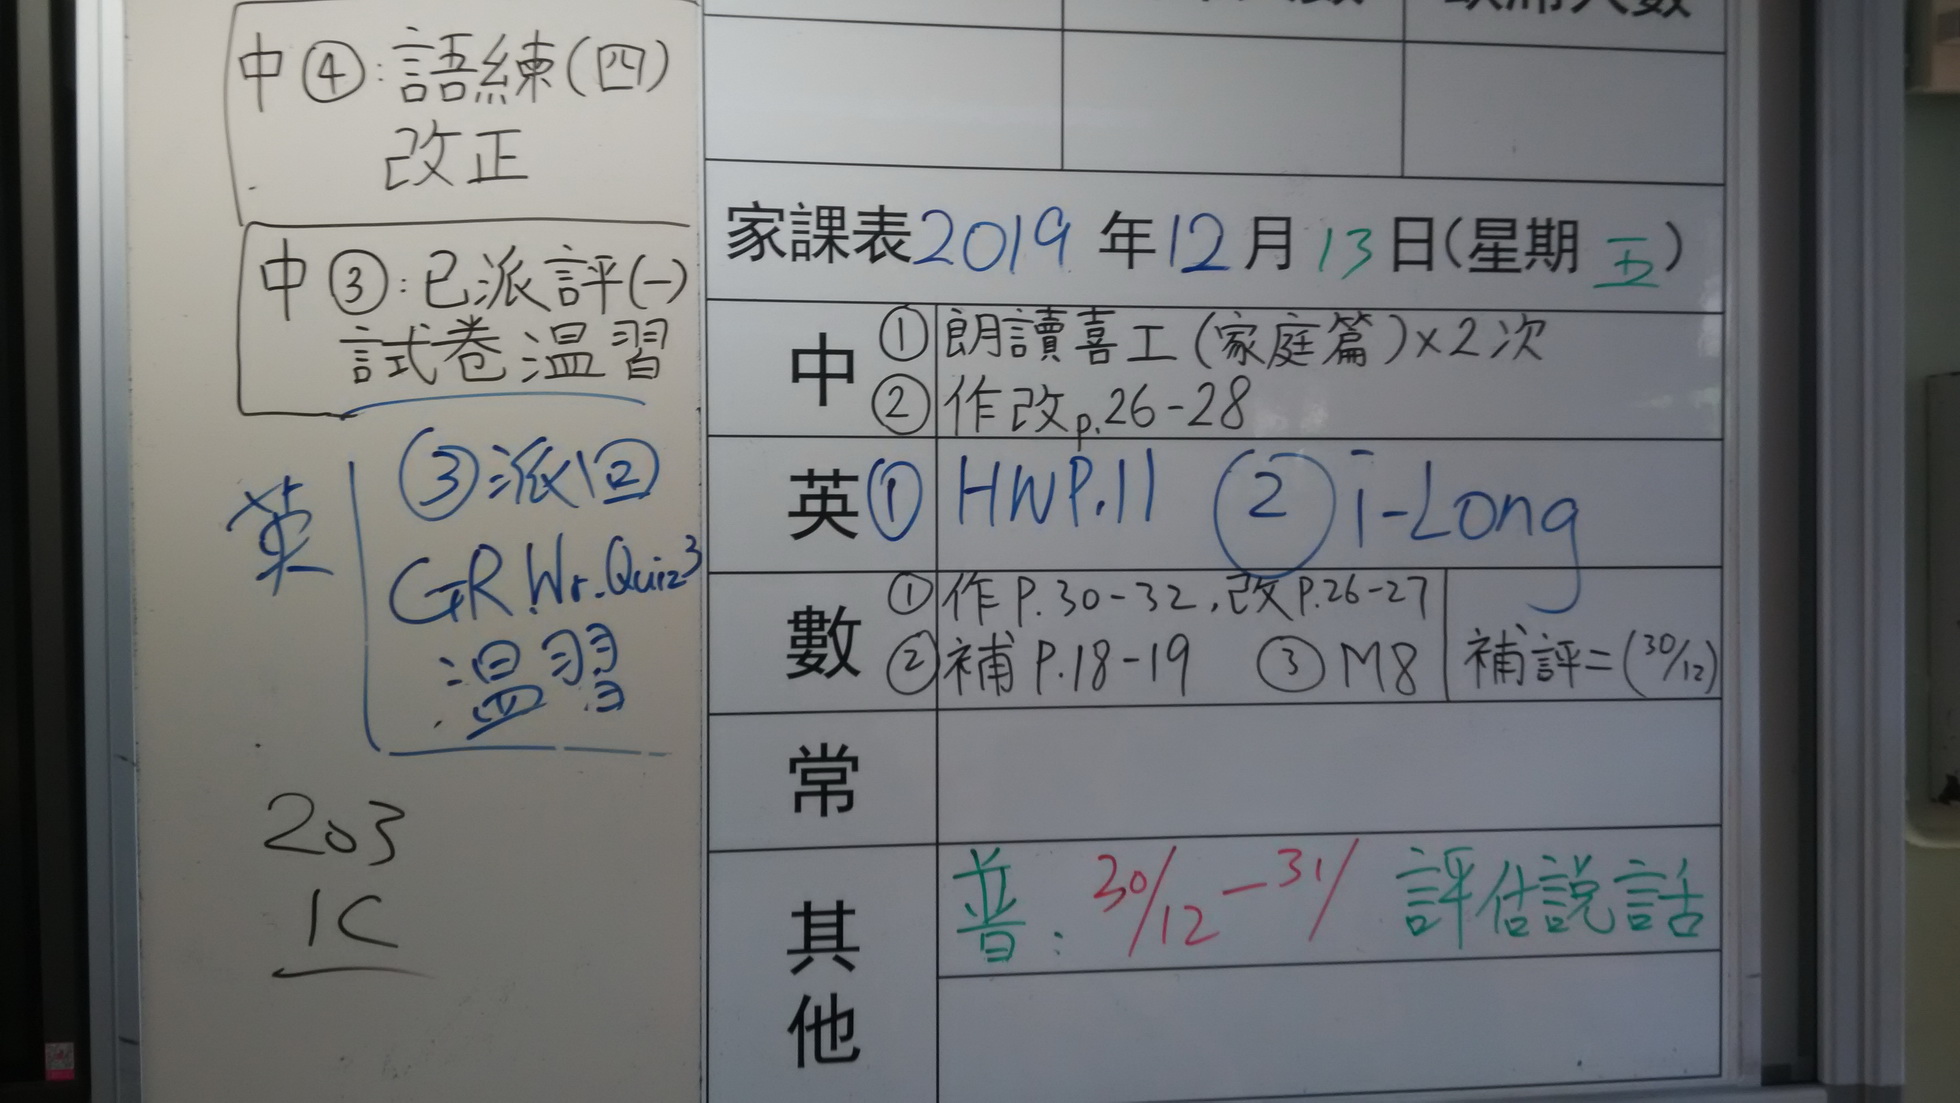 中④:語練(四)
改正
中③:已派評(一)
試卷溫習
英 ③派回
GR Wr.Quiz3
溫習
203
1C
席人數
家課表2019年12月13日(星期五)
中 ①朗讀喜工(家庭篇)×2次
②作改p.26-28
英 ①HWP.11 ②i-Long
數 ①作P.30-32,改P.26-27
②補P.18-19 ③M8 補評=(30/12)
常
其他 普:30/12-31/ 評估說話